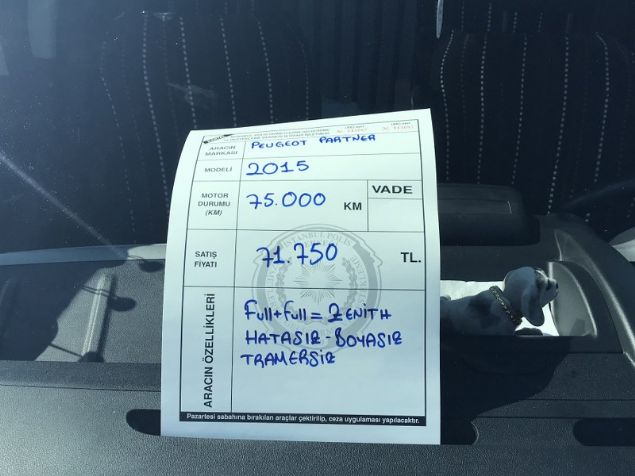 ARACIN MARKASI PEUGEOT PARTNER
MODELİ 2015
MOTOR DURUMU (KM) 75.000 KM VADE
SATIŞ FİYATI 71.750 TL.
ARACIN ÖZELLİKLERİ
Full+Full= ZENİTH
HATASIZ - BOYASIZ
TRAMERSİZ
Pazartesi sabahına bırakılan araçlar çektirilip, ceza uygulaması yapılacaktır.